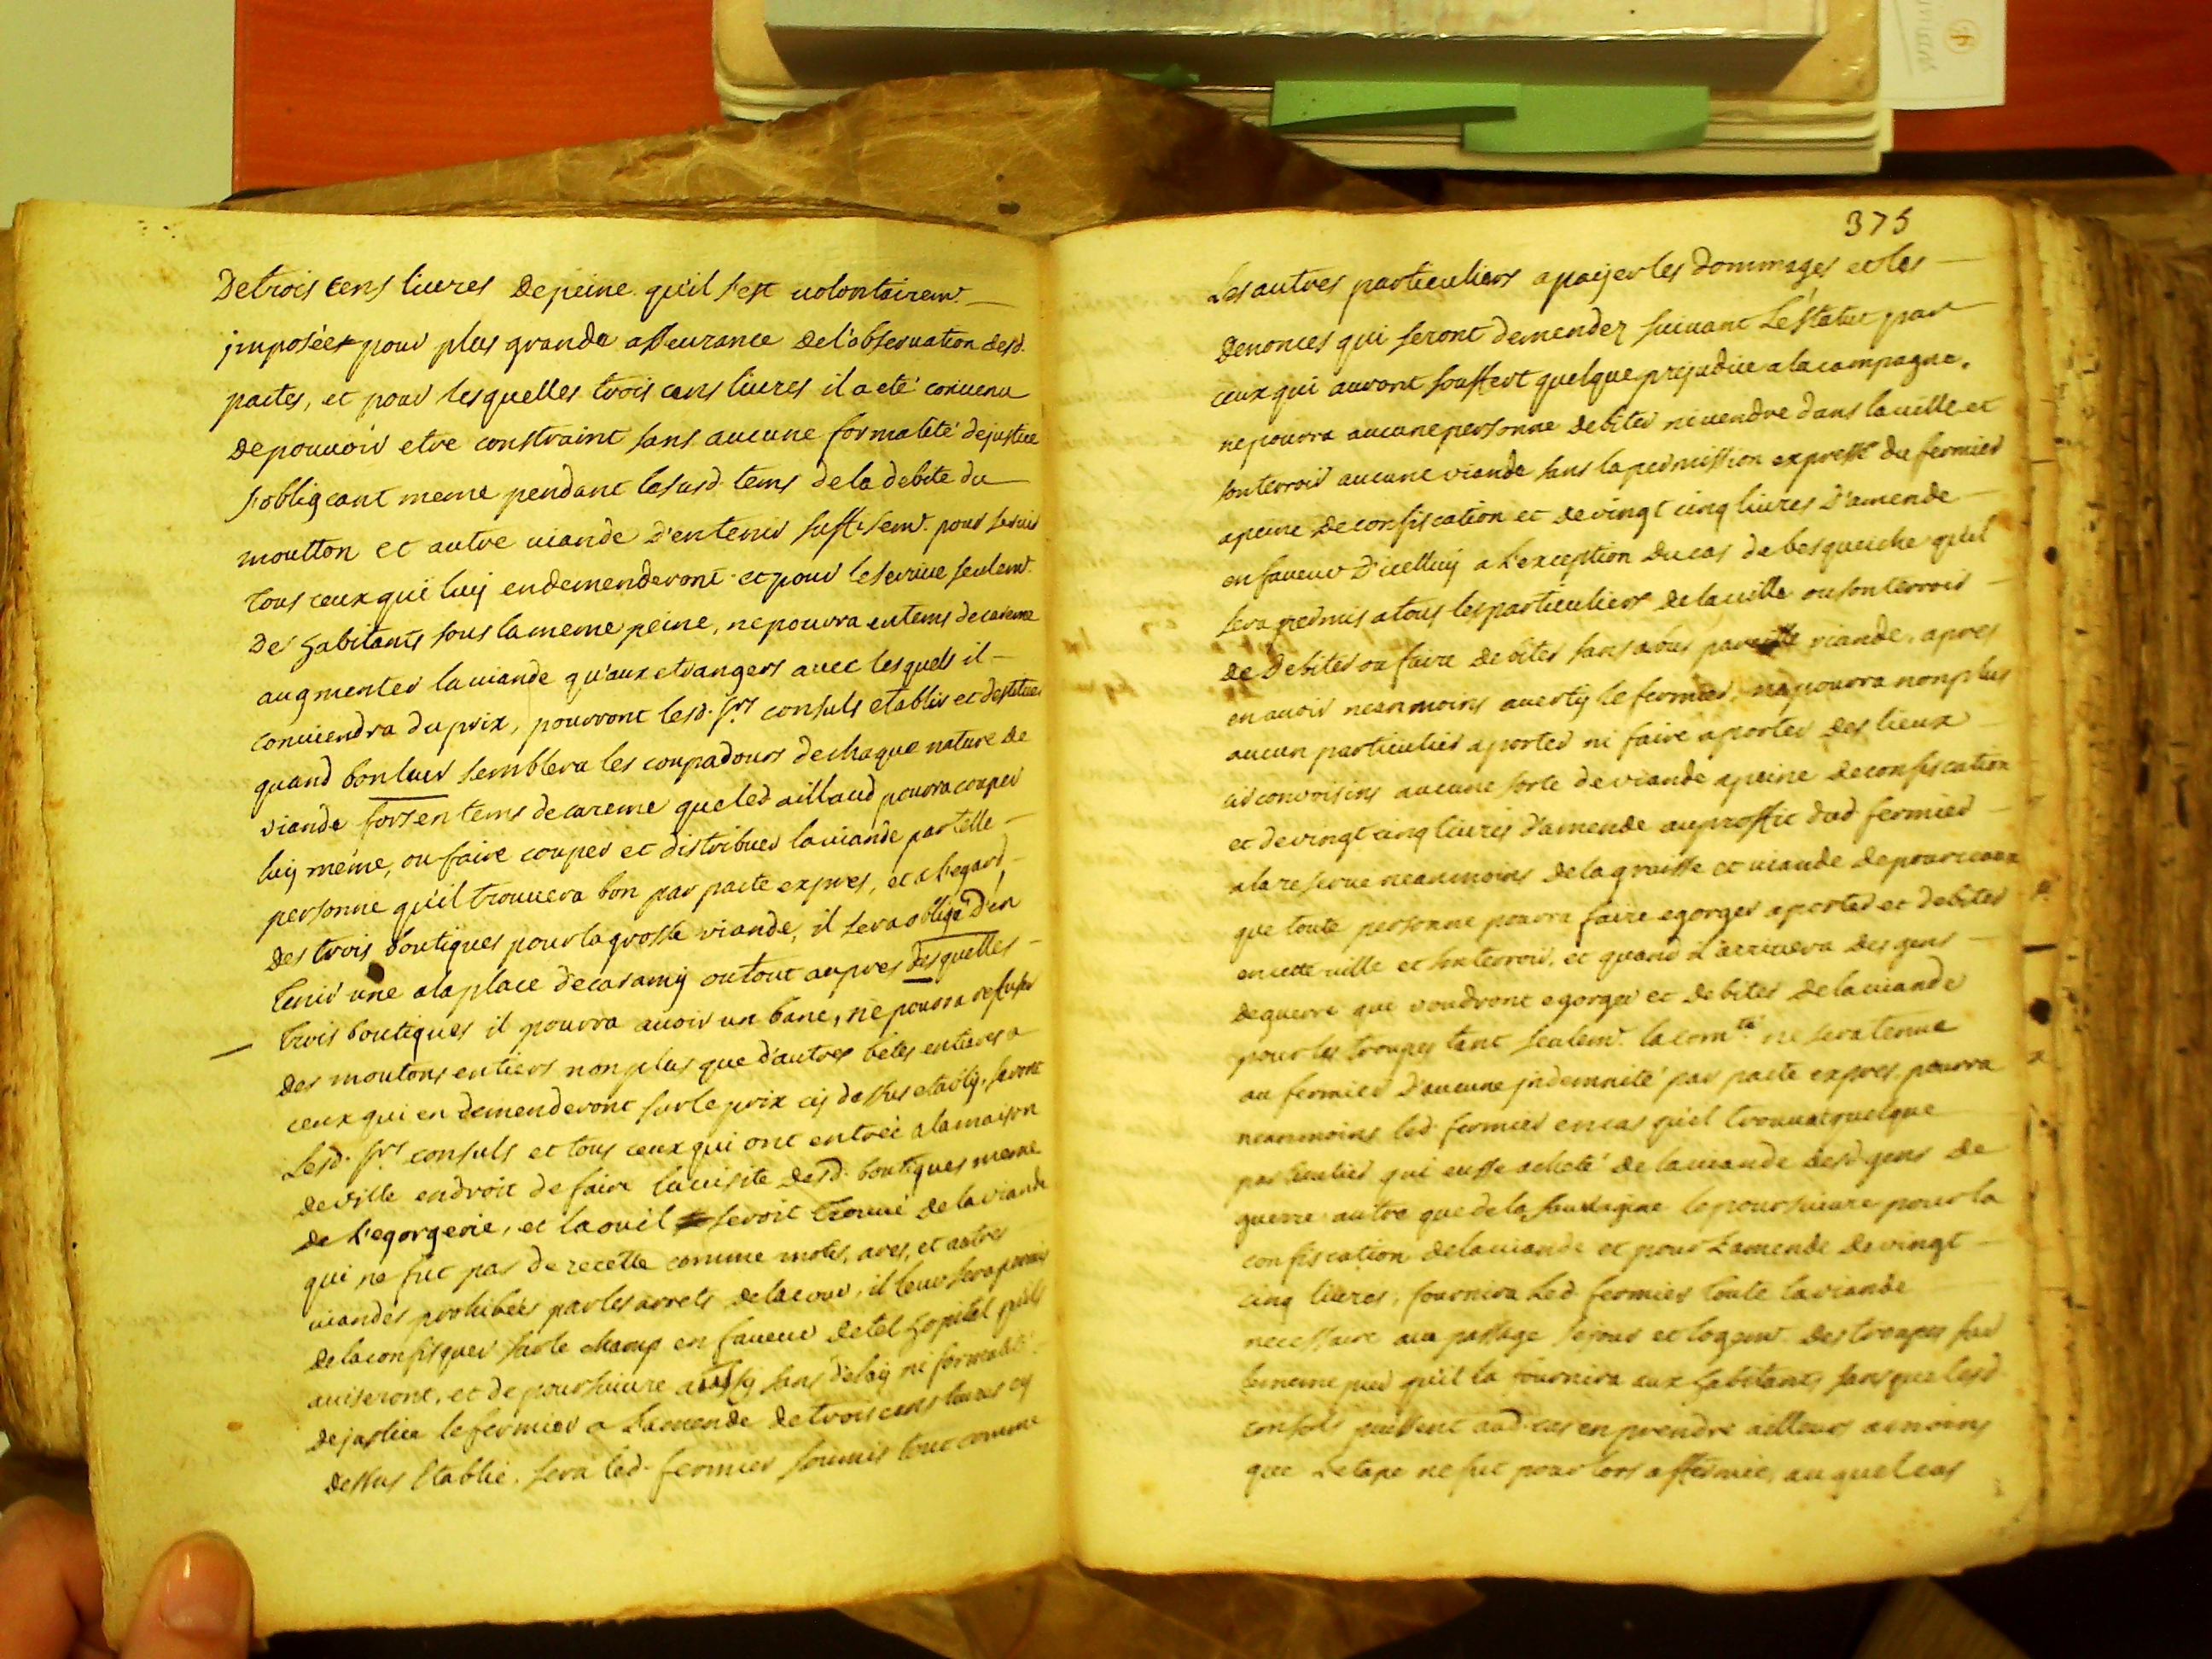 De trois cens livres de peine qu'il s'est volontairemt.
imposées pour plus grande asseurance de l'observation desd.
pactes, et pour lesquelles trois cens livres il a eté convenu
de pouvoir etre constraint sans aucune formalité de justice
s'obligeant meme pendant le susd. tems de la debite du
moutton et autre viande d'en tenir suffisemt. pour servir
tous ceux qui luy en demenderont et pour le service seulemt.
des habitants sous la meme peine, ne pourra en tems de careme
augmenter la viande qu'aux etrangers avec lesquels il
conviendra du prix, pourront lesd. srs consuls etablir et destituer
quand bon leur semblera les coupadours de chaque nature de
viande fors en tems de careme que led aillaud pourra couper
luy même, ou faire couper et distribuer la viande par telle
personne qu'il trouvera bon par pacte expres, et a l'egard
des trois boutiques pour la grosse viande, il sera obligé d'en
tenir une a la place de caramy ou tout aupres desquelles
trois boutiques il pourra avoir un banc, ne pourra refuser
des moutons entiers non plus que d'autres bêtes entieres a
ceux qui en demenderont sur le prix cy dessus etably, seront
lesd. srs consuls et tous ceux qui ont entrée a la maison
de ville en droit de faire la visite desd. boutiques meme
de l'egorgerie, et la ou il seroit trouvé de la viande
qui ne fut pas de recette comme motes, ares, et autres
viandes prohibées par les arrets de la cour, il leur sera permis
de la confisquer sur le champ en faveur de tel hopital qu'ils
aviseront, et de poursuivre aussy sans delay ni formalité
de justice le fermier a l'amende de trois cens livres cy
dessus etablie. sera led. fermier soumis tout comme
375
Les autres particuliers a payer les dommages et les
denonces qui seront demendez suivant le statut par
ceux qui auront souffert quelque prejudice a la campagne.
ne pourra aucune personne debiter ni vendre dans la ville et
son terroir aucune viande sans la permission expresse du fermier
a peine de confiscation et de vingt cinq livres d'amende
en faveur d'icelluy a l'exception du cas de besqueiche qu'il
sera permis a tous les particuliers de la ville ou son terroir
de debiter ou faire debiter sans avus pareille viande, apres
en avoir neanmoins averty le fermier, ne pourra non plus
aucun particulier aporter ni faire aporter des lieux
circonvoisins aucune sorte de viande a peine de confiscation
et de vingt cinq livres d'amende au proffit dud fermier
a la reserve neanmoins de la graisse et viande de pourceaux
que toute personne pourra faire egorger aporter et debiter
en cette ville et son terroir, et quand il arrivera des gens
de guerre qui voudront egorger et debiter de la viande
pour les troupes tant seulemt. la comté. ne sera tenue
au fermier d'aucune indemnité par pacte expres. pourra
neanmoins led. fermier en cas qu'il trouvat quelque
particulier qui eusse acheté de la viande desd. gens de
guerre autre que de la sauvagine le poursuivre pour la
confiscation de la viande et pour l'amende de vingt
cinq livres, fournira led. fermier toute la viande
necessaire au passage sejour et logemt. des troupes sur
le meme pied qu'il la fournira aux habitants sans que lesd.
consuls puissent aud. cas en prendre ailleurs a moins
que l'etape ne fut pour lors affermée, auquel cas